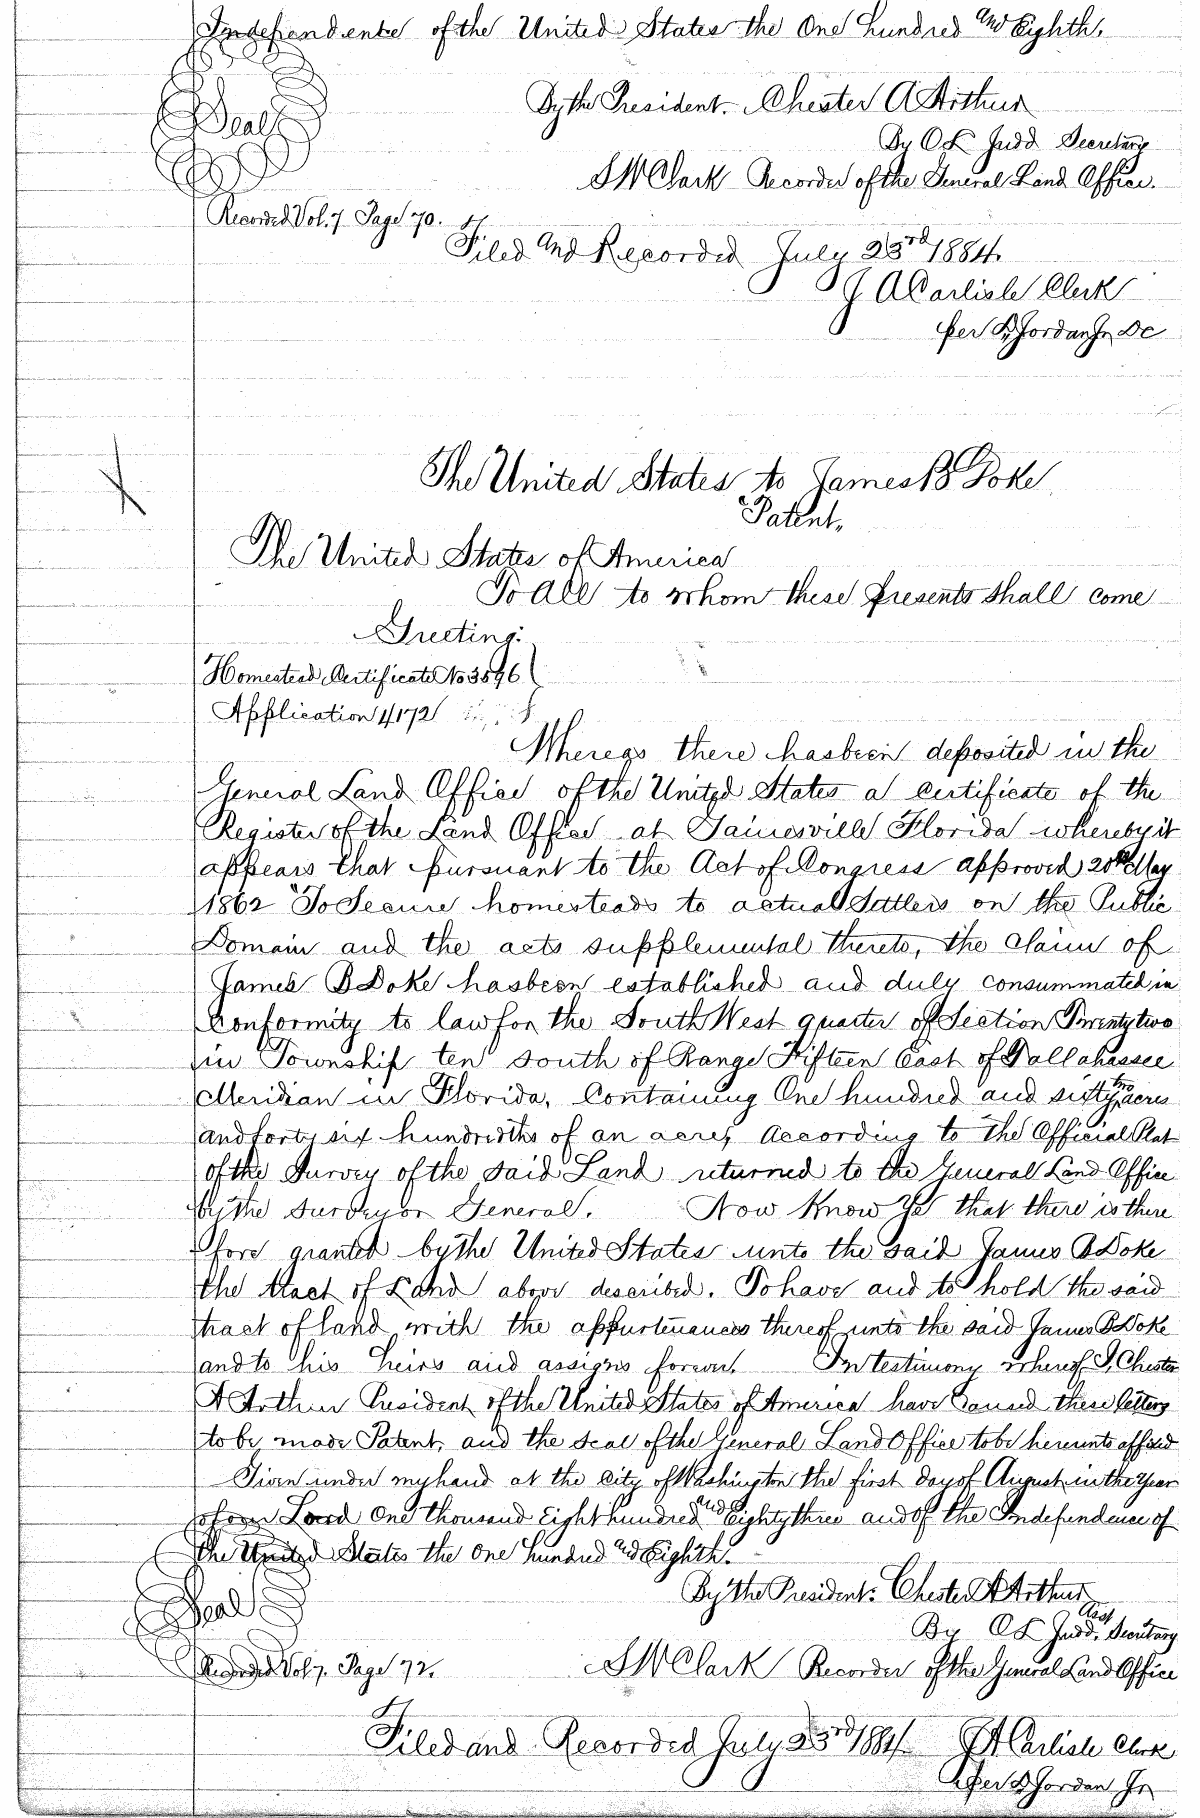 Independence of the United States the One hundred and Eighth.
Seal
By the President. Chester A Arthur
By O L Judd Secretary
S W Clark Recorder of the General Land Office.
Recorded Vol. 7 Page 70.
Filed and Recorded July 23rd 1884.
J A Carlisle Clerk
per Jordan Jr DC
The United States to James B Doke
Patent.
The United States of America
To All to whom these presents shall come
Greeting:
Homestead Certificate No 3596
Application 11172
Whereas there has been deposited in the
General Land Office of the United States a certificate of the
Register of the Land Office at Gainesville Florida whereby it
appears that pursuant to the Act of Congress approved 20th May
1862 "To Secure homesteads to actual Settlers on the Public
Domain and the acts supplemental thereto, the claim of
James B Doke has been established and duly consummated in
conformity to law for the South West quarter of Section Twenty two
in Township ten south of Range Fifteen East of Tallahassee
Meridian in Florida, Containing One hundred and sixty two acres
and forty six hundredths of an acre, According to the Official Plat
of the Survey of the said Land returned to the General Land Office
by the Surveyor General. Now Know Ye that there is there
fore granted by the United States unto the said James B Doke
the tract of Land above described. To have and to hold the said
tract of land with the appurtenances thereof unto the said James B Doke
and to his heirs and assigns forever. In testimony whereof I, Chester
A Arthur President of the United States of America have caused these letters
to be made Patent, and the seal of the General Land Office to be hereunto affixed
Given under my hand at the City of Washington the first day of August in the Year
of our Lord One thousand Eight hundred and Eighty three and of the Independence of
the United States the One hundred and Eighth.
Seal
By the President: Chester A Arthur
By O L Judd, Asst Secretary
Recorded Vol 7. Page 72.
S W Clark Recorder of the General Land Office
Filed and Recorded July 23rd 1884 J A Carlisle Clerk
per Jordan Jr